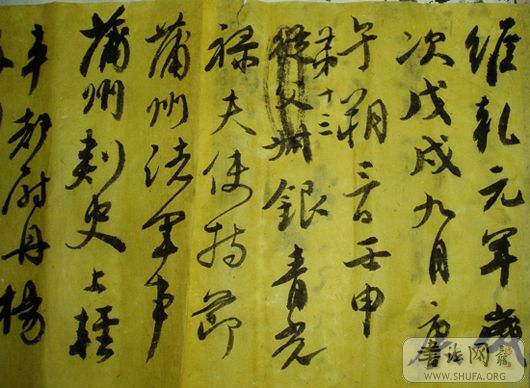 維乾元年歲
次戊戌九月庚
午朔三日壬申
第十三
從父叔銀青光
祿夫使持節
蒲州諸軍事
蒲州刺史上輕
車都尉丹楊
書法网
WWW.SHUFA.ORG